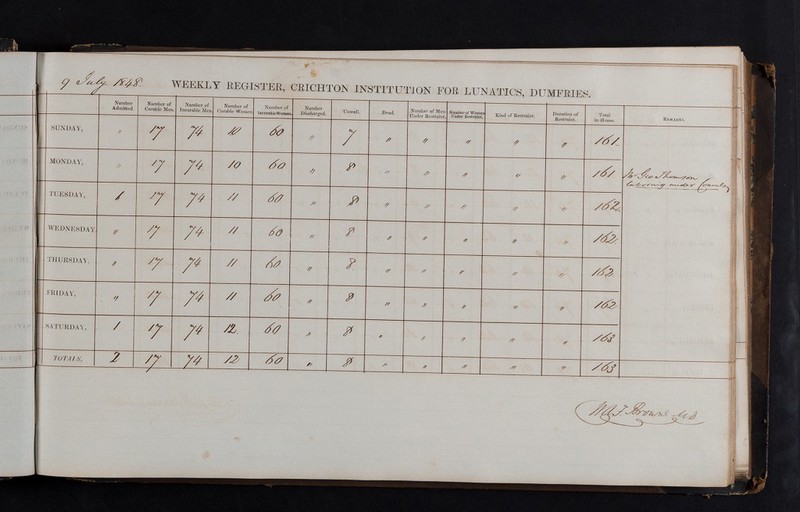 9 July 1848. WEEKLY REGISTER, CRICHTON INSTITUTION FOR LUNATICS, DUMFRIES.
Number Admitted. Number of Curable Men. Number of Incurable Men. Number of Curable Women. Number of Incurable Women. Number Discharged. Unwell. Dead. Number of Men Under Restraint. Number of Women Under Restraint. Kind of Restraint. Duration of Restraint. Total in House. REMARKS.
SUNDAY, " 17 74 10 60 " 7 " " " " " 161.
MONDAY, " 17 74 10 60 " 8 " " " " " 161 Mr Geo Thomson
labouring under
TUESDAY, 1 17 74 11 60 " 8 " " " " " 162.
WEDNESDAY, " 17 74 11 60 " 8 " " " " " 162.
THURSDAY, " 17 74 11 60 " 8 " " " " " 162
FRIDAY, " 17 74 11 60 " 8 " " " " " 162
SATURDAY, 1 17 74 12. 60 " 8 " " " " " 163
TOTALS. 2 17 74 12 60 " 8 " " " " " 163
W A F Browne MD